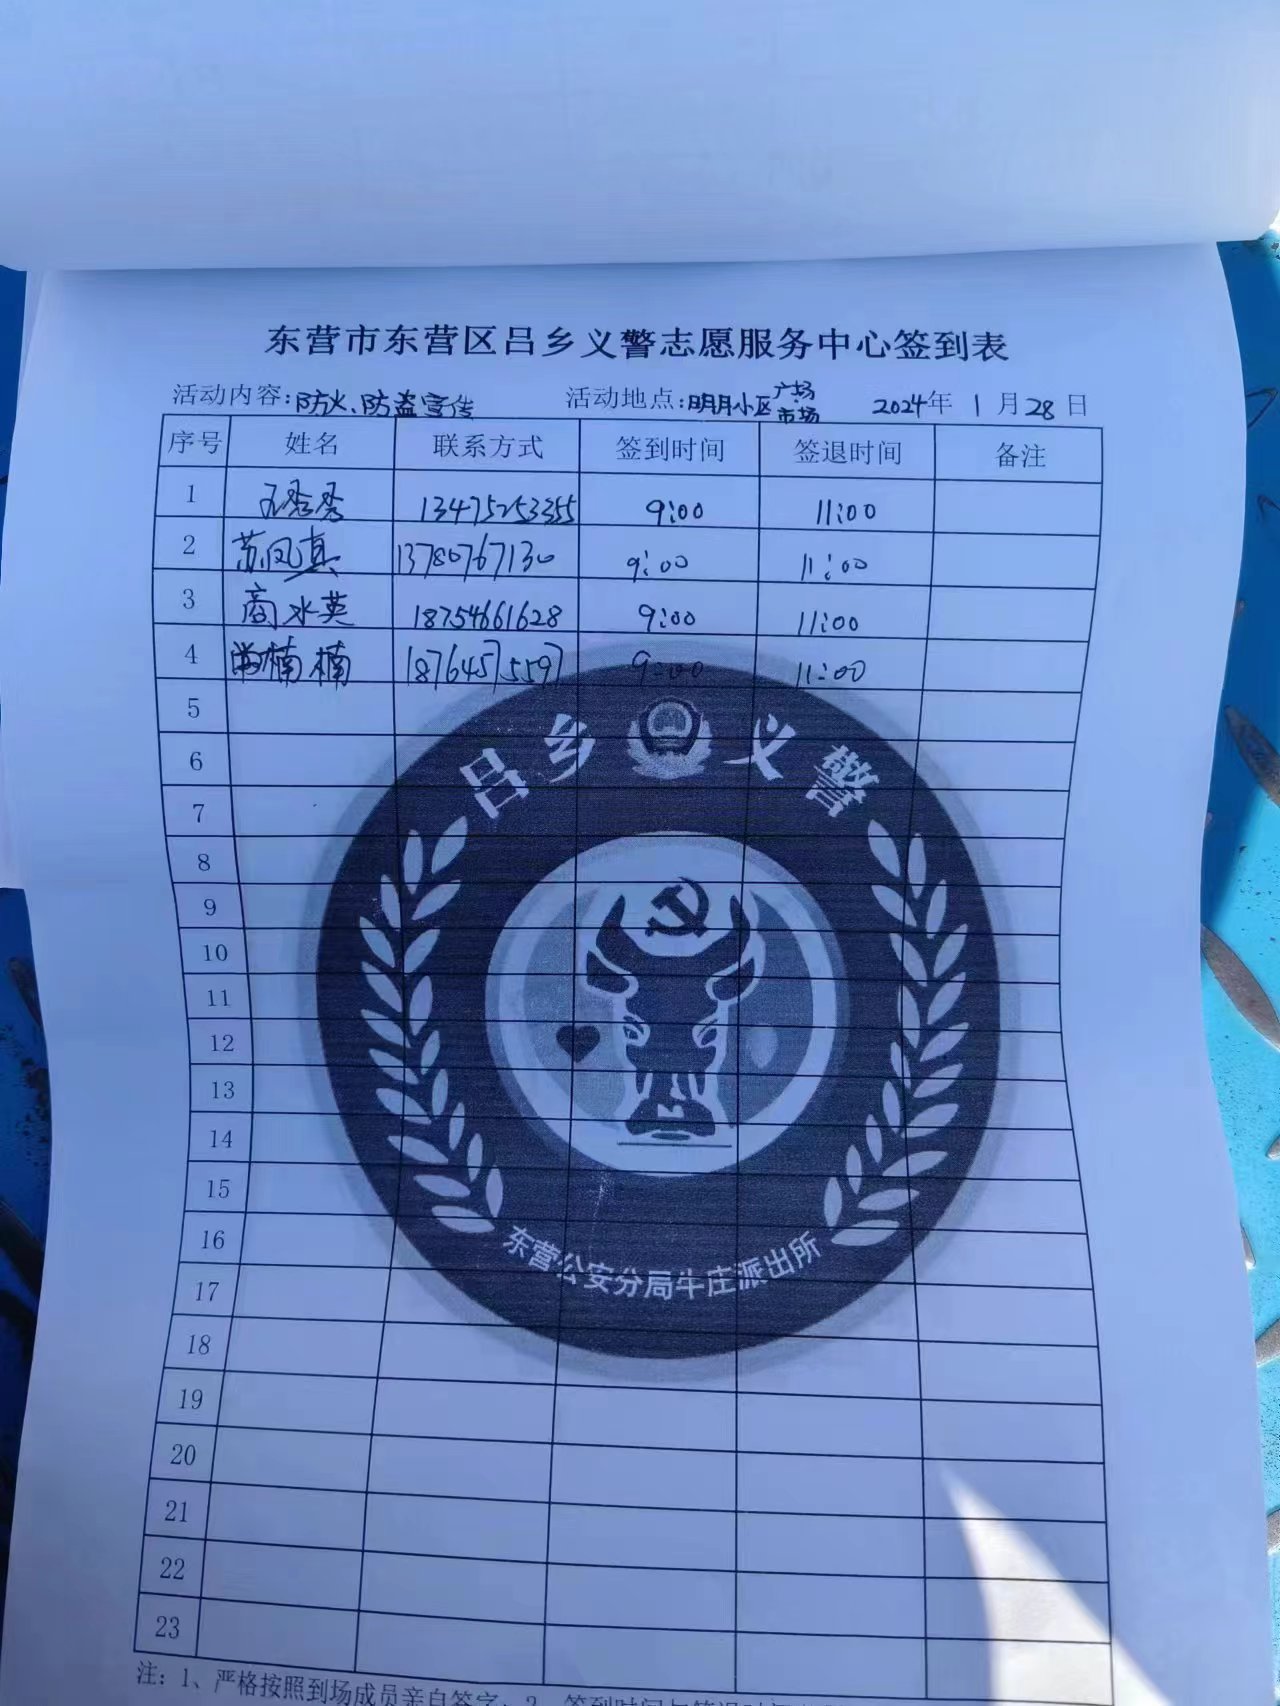 东营市东营区吕乡义警志愿服务中心签到表
活动内容:防火、防盗宣传 活动地点:明月小区广场市场 2024年 1月28日
序号 姓名 联系方式 签到时间 签退时间 备注
1 秀秀 13475253355 9:00 11:00
2 苏凤真 13780767130 9:00 11:00
3 商水英 18754661628 9:00 11:00
4 常楠楠 18764575597 9:00 11:00
5
6
7
8
9
10
11
12
13
14
15
16
17
18
19
20
21
22
23
吕乡义警
东营公安分局牛庄派出所
注:1、严格按照到场成员亲自签字;2、签到时间与签退时间